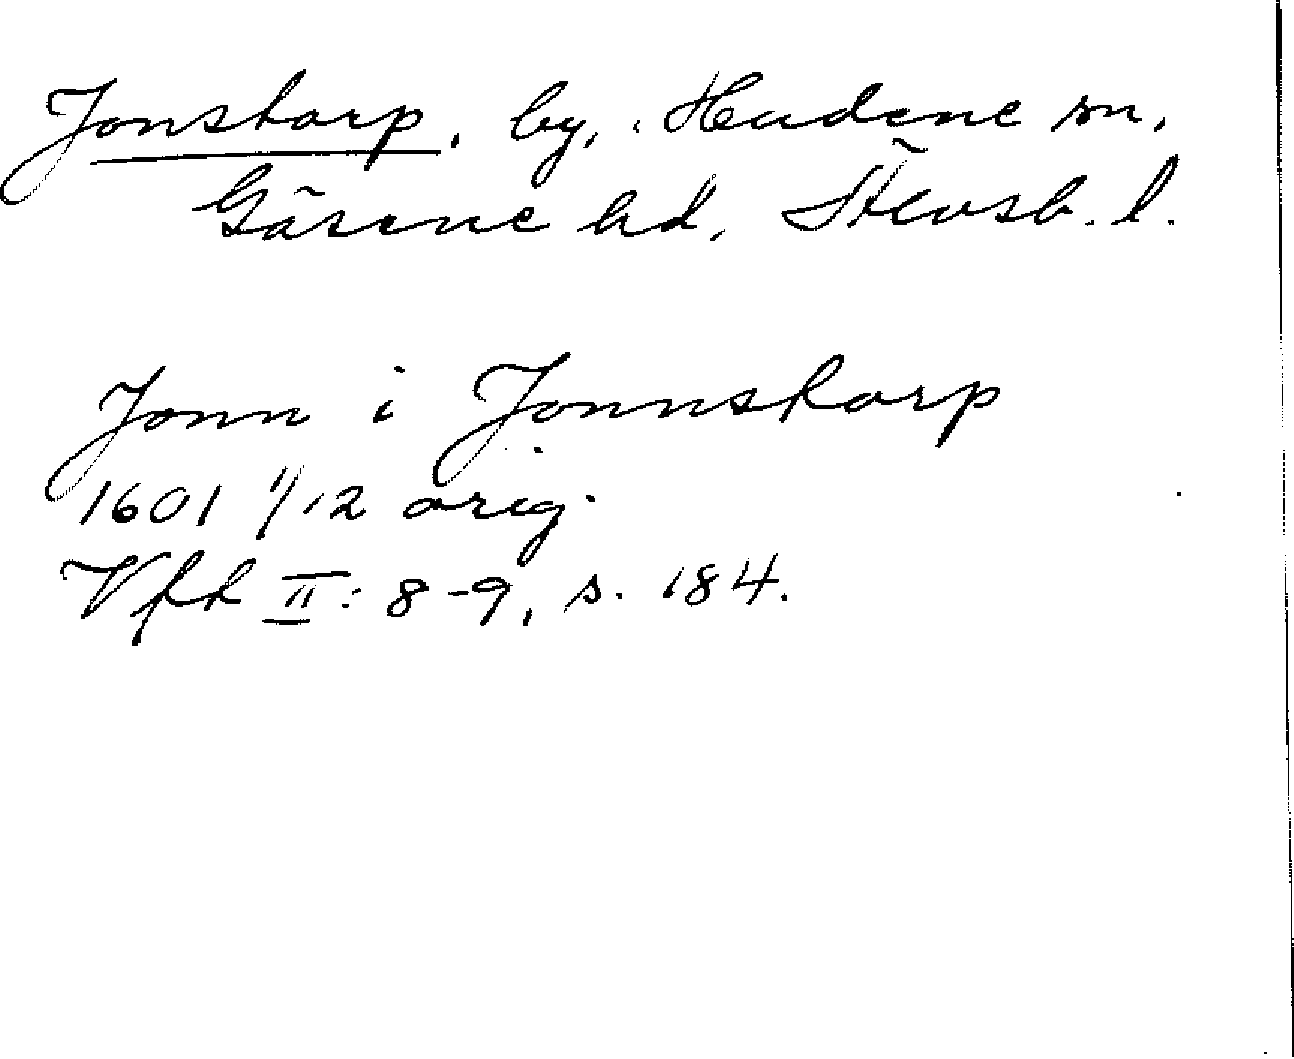 Jonstorp, by, Hudene sn,
Gäsene hd, Älvsb. l.
Jonn i Jonnstorp
1601 1/12 orig.
Vfh II: 8-9, s. 184.